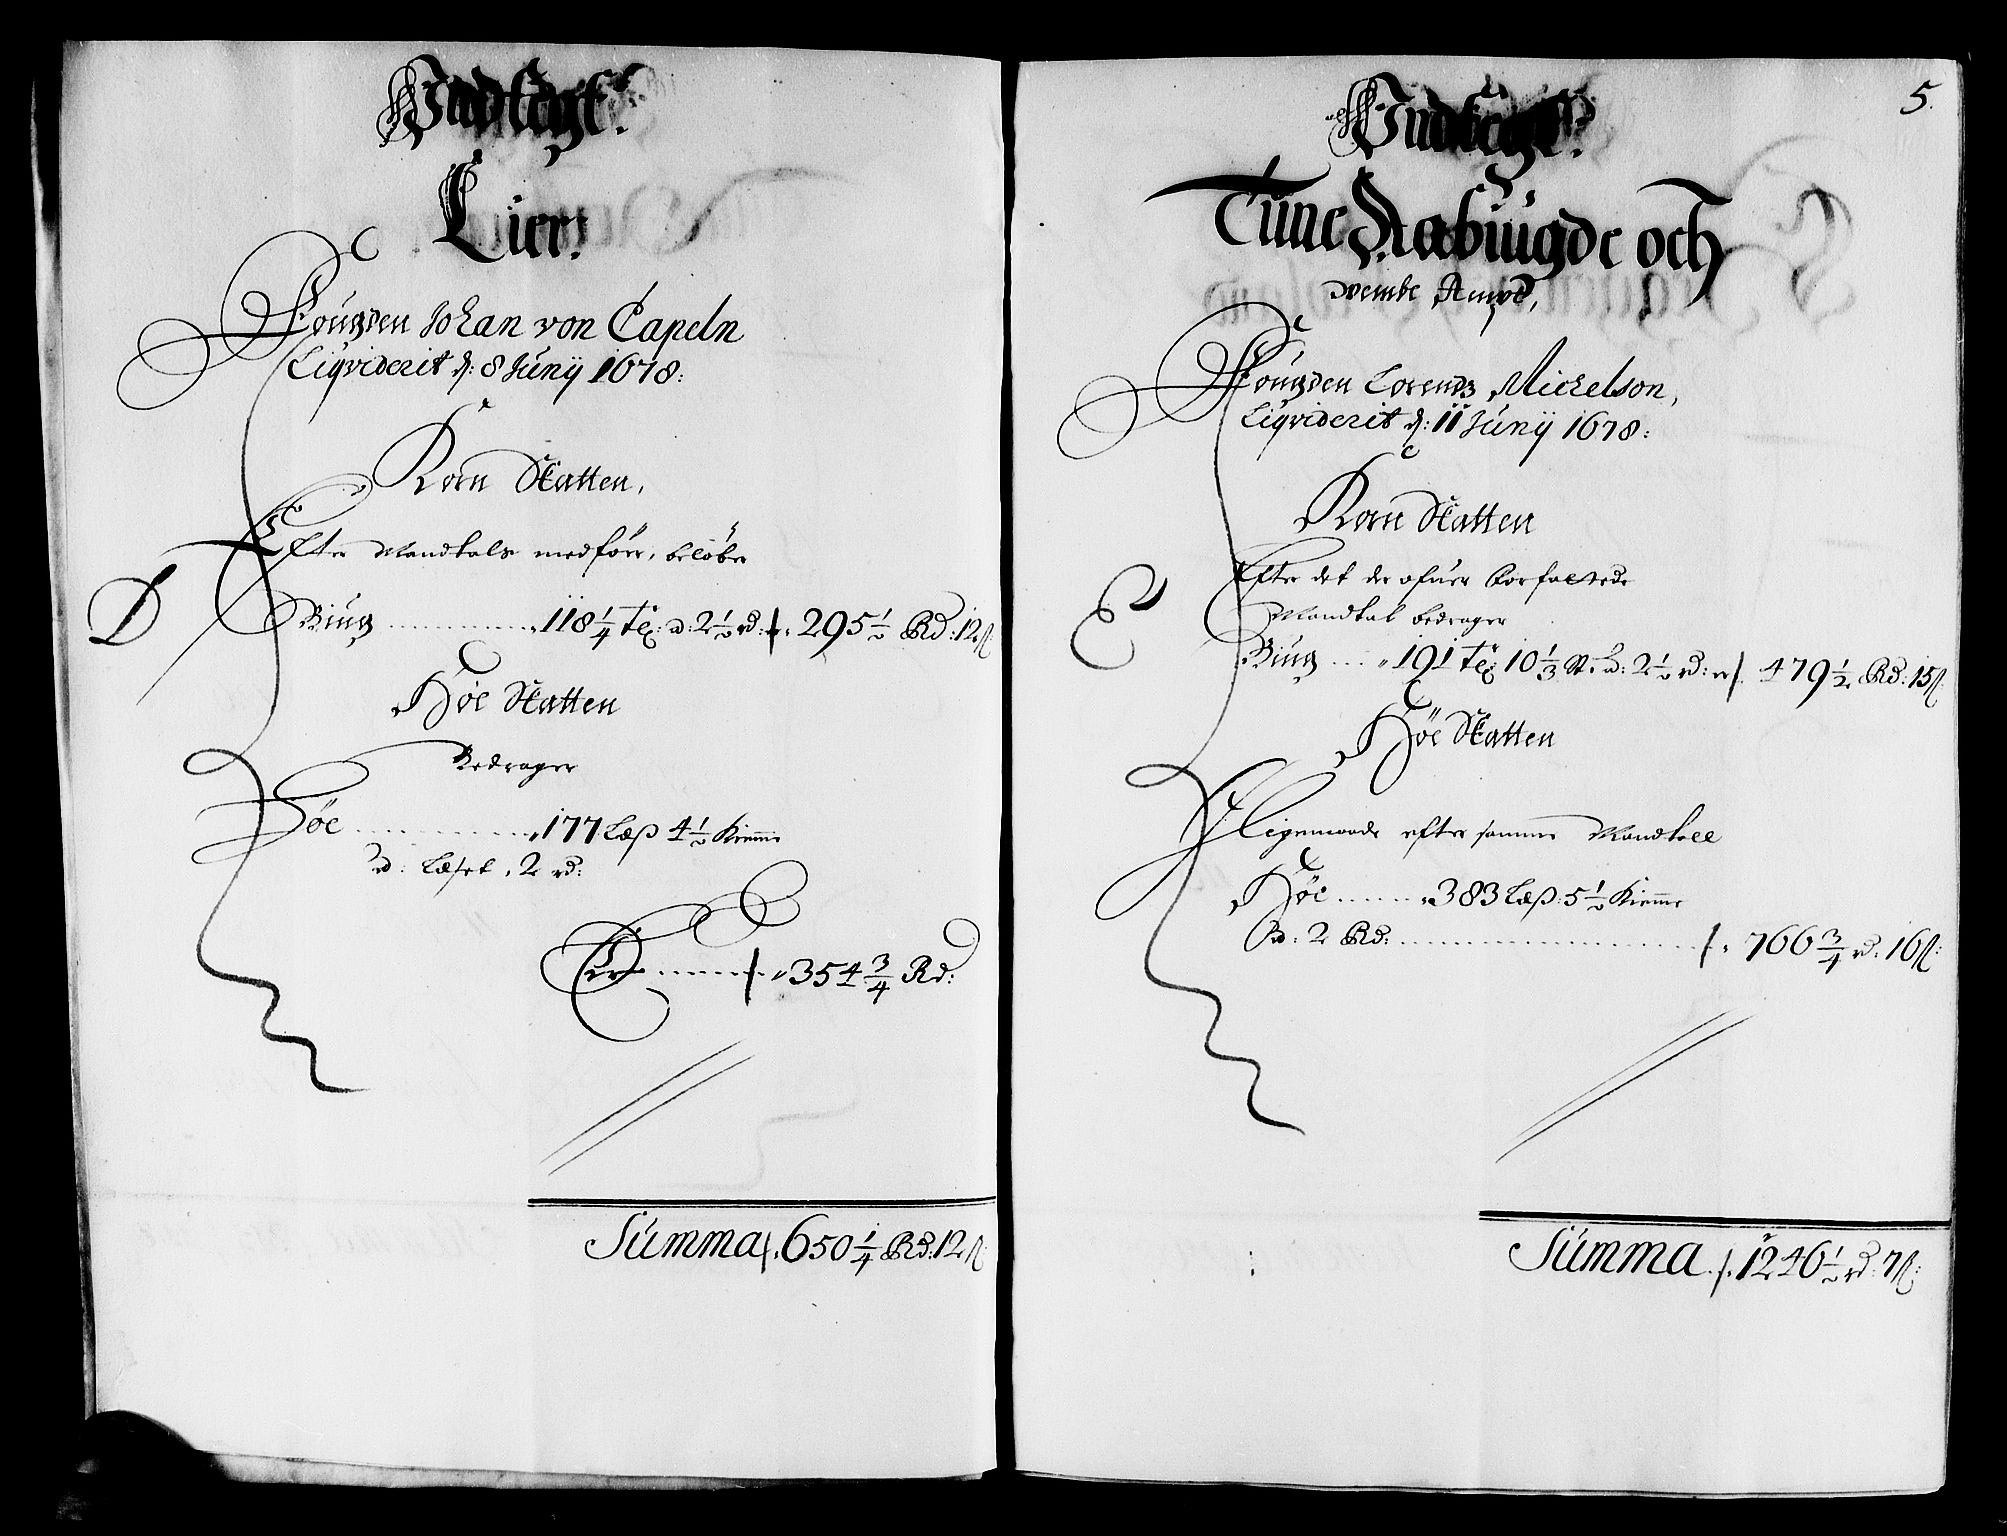 Indtegt.
Lier.
Fougden Johan von Capeln
Liqviderit d: 8 Junij 1678:
Korn Skatten,
Efter Mandtals medför, belöber
D
Biug ......... 118 1/4 tr: a: 2 1/2 rd: er 295 1/2 Rd: 12 ß:
Höe Skatten
Bedrager
Höe ......... 177 Læß 4 1/2 Kimme
a: Læset, 2 rd:
Er ......... 354 3/4 Rd:
Summa 650 1/4 Rd: 12 ß:
5.
Indtegt.
Tune Aabüugde och
Fougden Lorendz Michelson,
Liqviderit d: 11 Junij 1678:
Korn Skatten
Efter det der ofuer forfattede
E
Mandtal bedrager
Biug ... 191 tr: 10 1/3 St. a: 2 1/2 rd: er 479 1/2 Rd: 15 ß:
Höe Skatten
Ligemaade efter samme Mandtall
Höe ...... 383 Læß: 5 1/2 Kimme
a: 2 Rd: ......... 766 3/4 rd: 16 ß:
Summa 1246 1/2 rd: 7 ß: